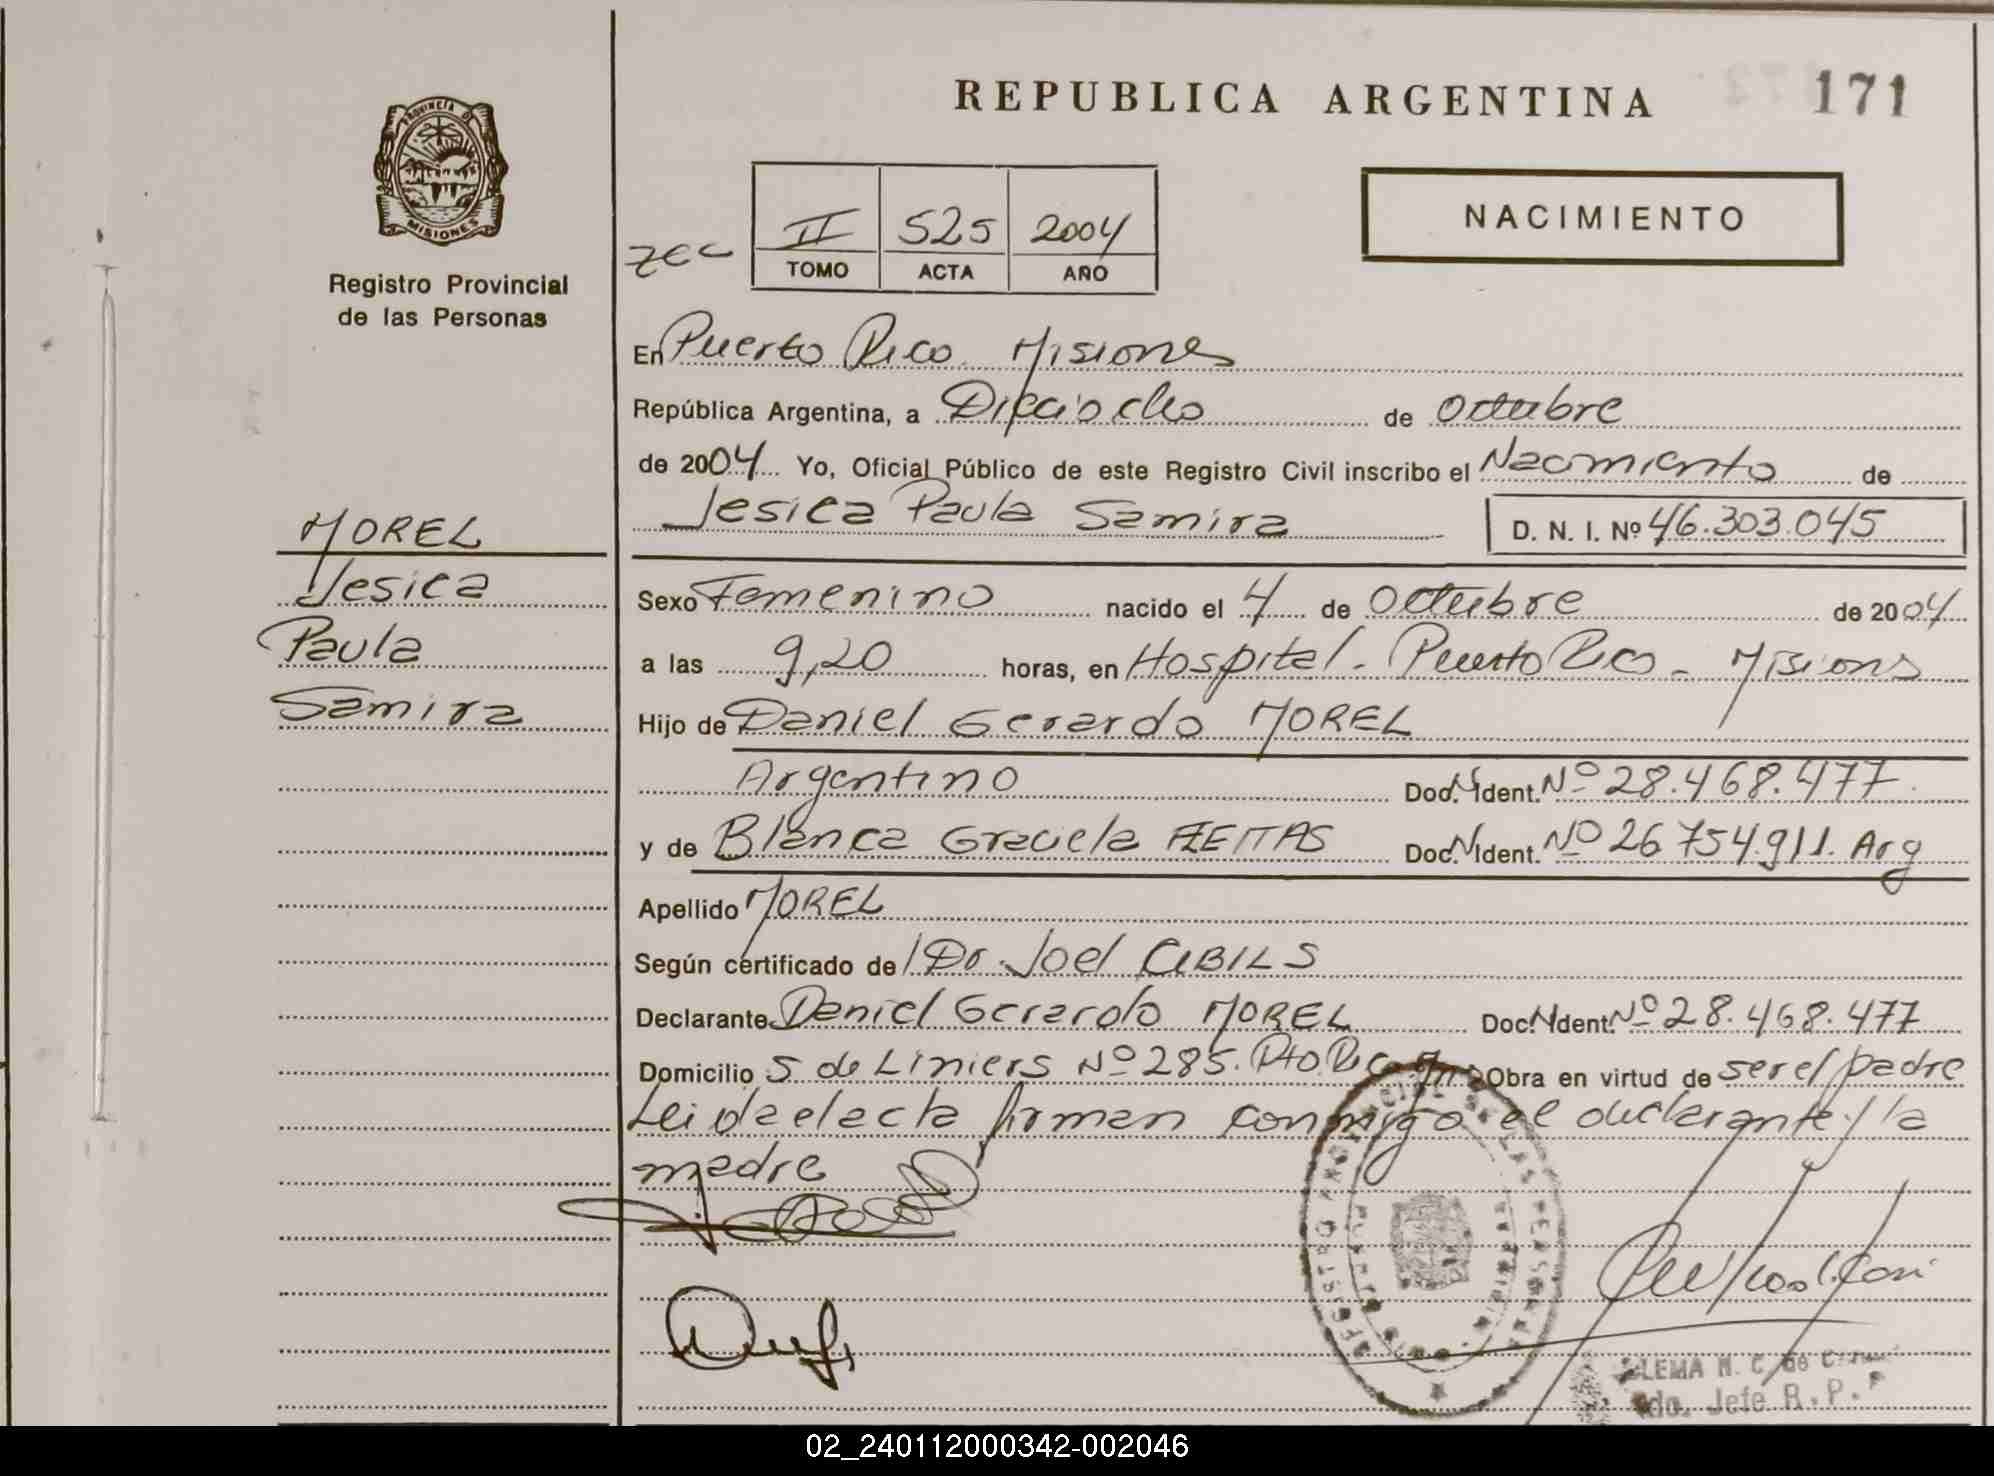 REPUBLICA ARGENTINA
171
PROVINCIA DE
MISIONES
Registro Provincial
de las Personas
II 525 2004
TOMO ACTA AÑO
NACIMIENTO
En Puerto Rico Misiones
República Argentina, a Dieciocho de Octubre
de 2004 Yo, Oficial Público de este Registro Civil inscribo el Nacimiento de
Jesica Paula Samira D. N. I. Nº 46.303.045
MOREL
Jesica
Paula
Samira
Sexo Femenino nacido el 4 de Octubre de 2004
a las 9,20 horas, en Hospital. Puerto Rico - Misions
Hijo de Daniel Gerardo MOREL
Argentino Doc. Ident. Nº 28.468.477
y de Blanca Graciela Doc. Ident. Nº 26 754.911. Arg
Apellido MOREL
Según certificado de Dr. Joel CIBILS
Declarante Daniel Gerardo MOREL Doc. Ident. Nº 28.468.477
Domicilio S de Liniers Nº 285. Pto Rico Obra en virtud de ser el padre
Leida el acta firman conmigo el declarante y la
madre
LEMA N. C. de
do. Jefe R. P.
02_240112000342-002046